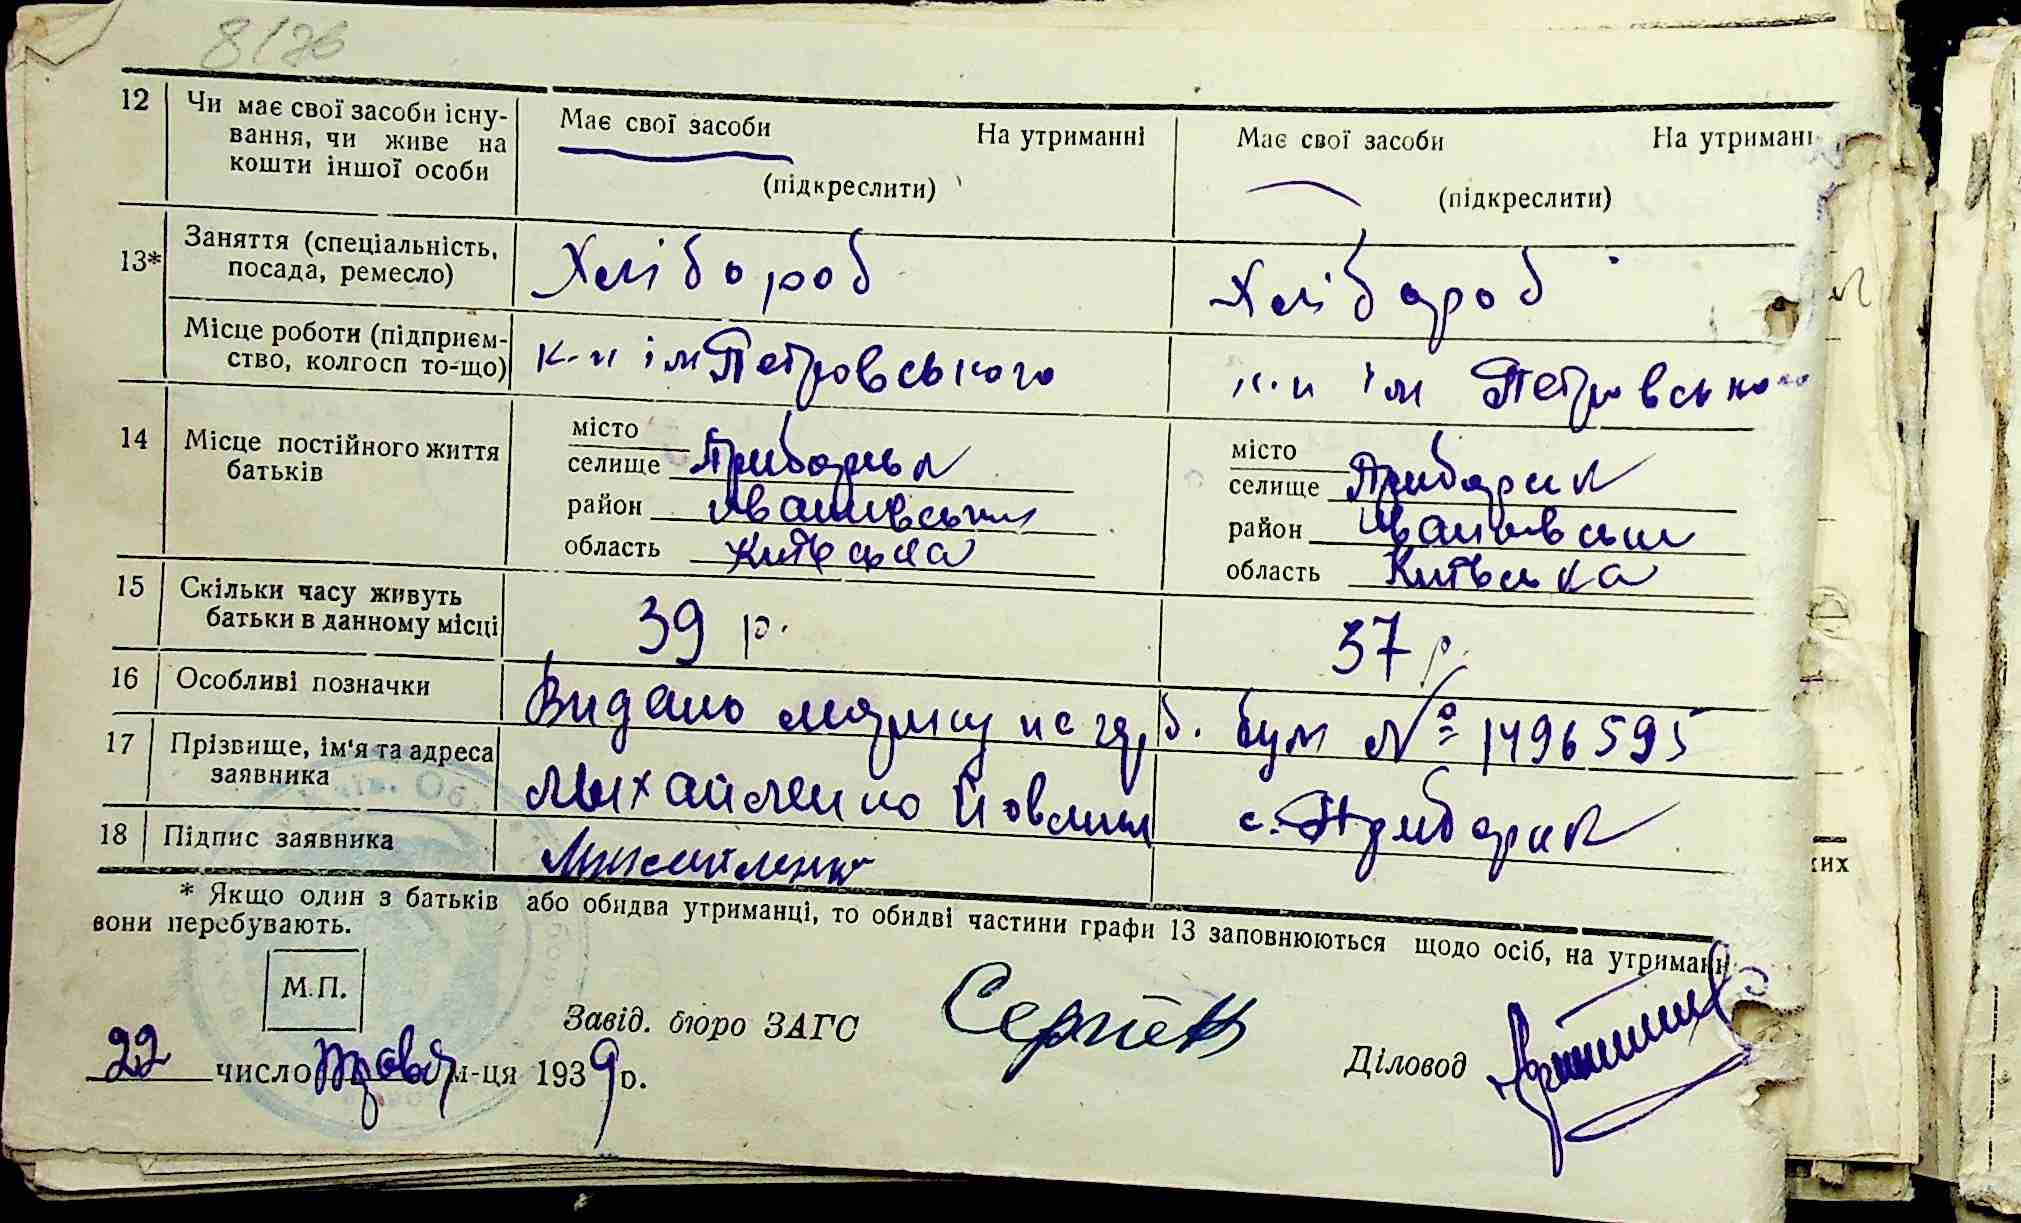 8/26
12 Чи має свої засоби існу- Має свої засоби На утриманні Має свої засоби На утриманн
вання, чи живе на
кошти іншої особи (підкреслити) (підкреслити)
13* Заняття (спеціальність, Хлібороб Хлібороб
посада, ремесло)
Місце роботи (підприєм- к-п ім Петровського к-п ім Петровського
ство, колгосп то-що)
14 Місце постійного життя місто місто
батьків селище Приборськ селище Приборськ
район Іванківський район Іванківськи
область Київська область Київська
15 Скільки часу живуть 39 р. 37 р.
батьки в данному місці
16 Особливі позначки Видано на герб. бум № 1496595
17 Прізвище, ім'я та адреса Михайленко с.
заявника
18 Підпис заявника Михайленко
* Якщо один з батьків або обидва утриманці, то обидві частини графи 13 заповнюються щодо осіб, на утриманн
вони перебувають.
М.П.
Завід. бюро ЗАГС
22 число травня м-ця 1939 р.
Діловод